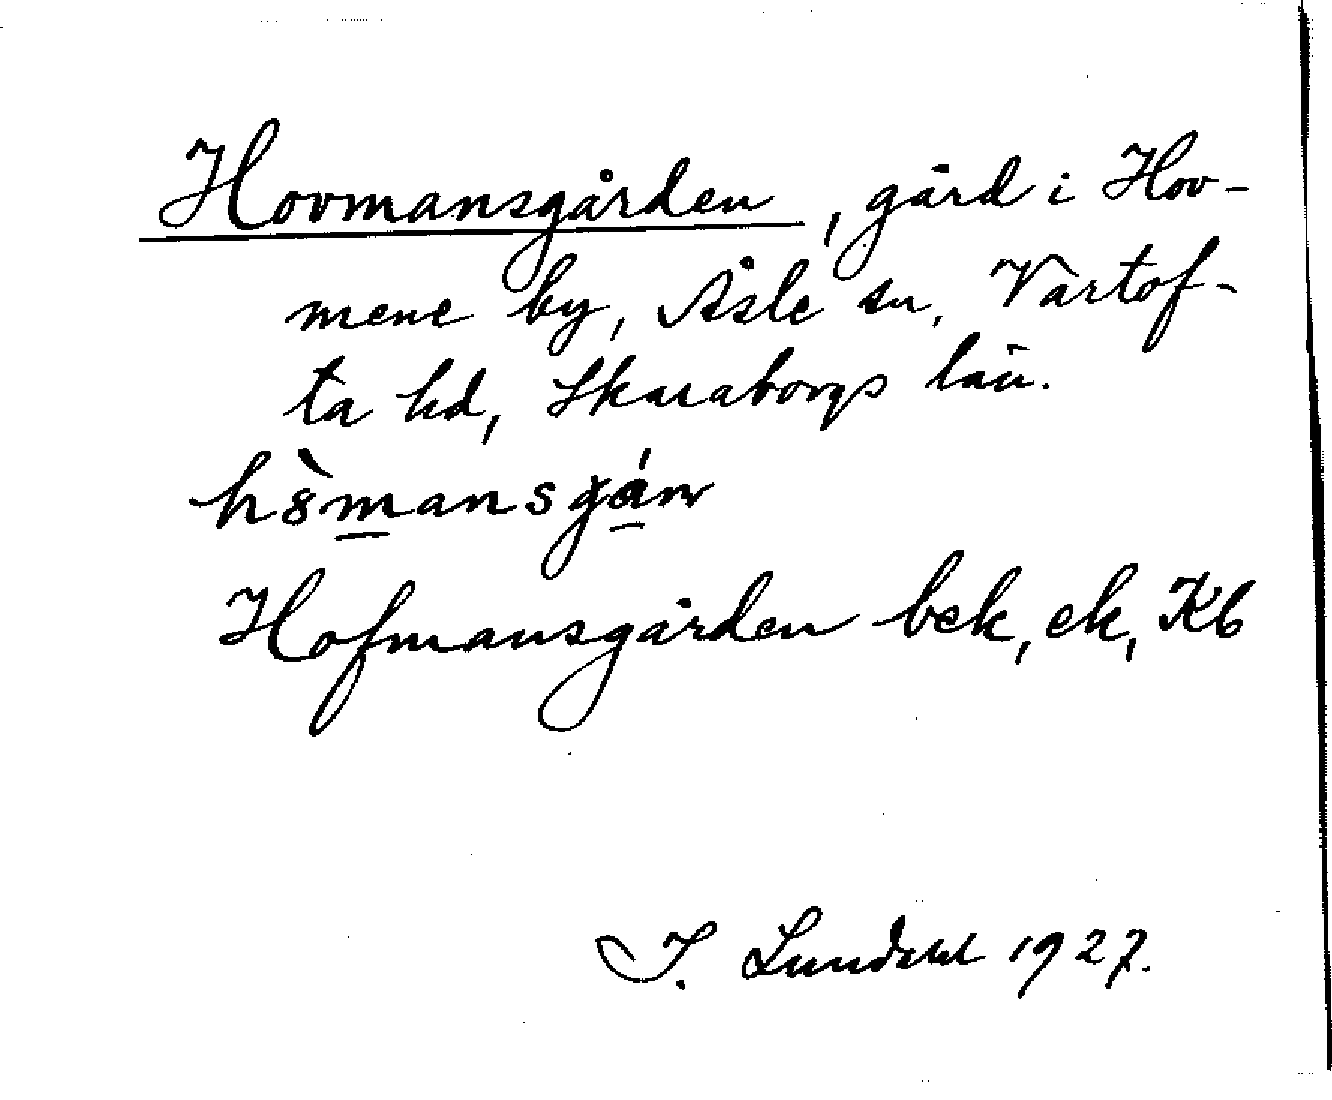 Hovmansgården, gård i Hov-
mene by, Åsle sn, Vartof-
ta hd, Skaraborgs län.
Hofmansgården bek, ek, Kb
I. Lundahl 1927.